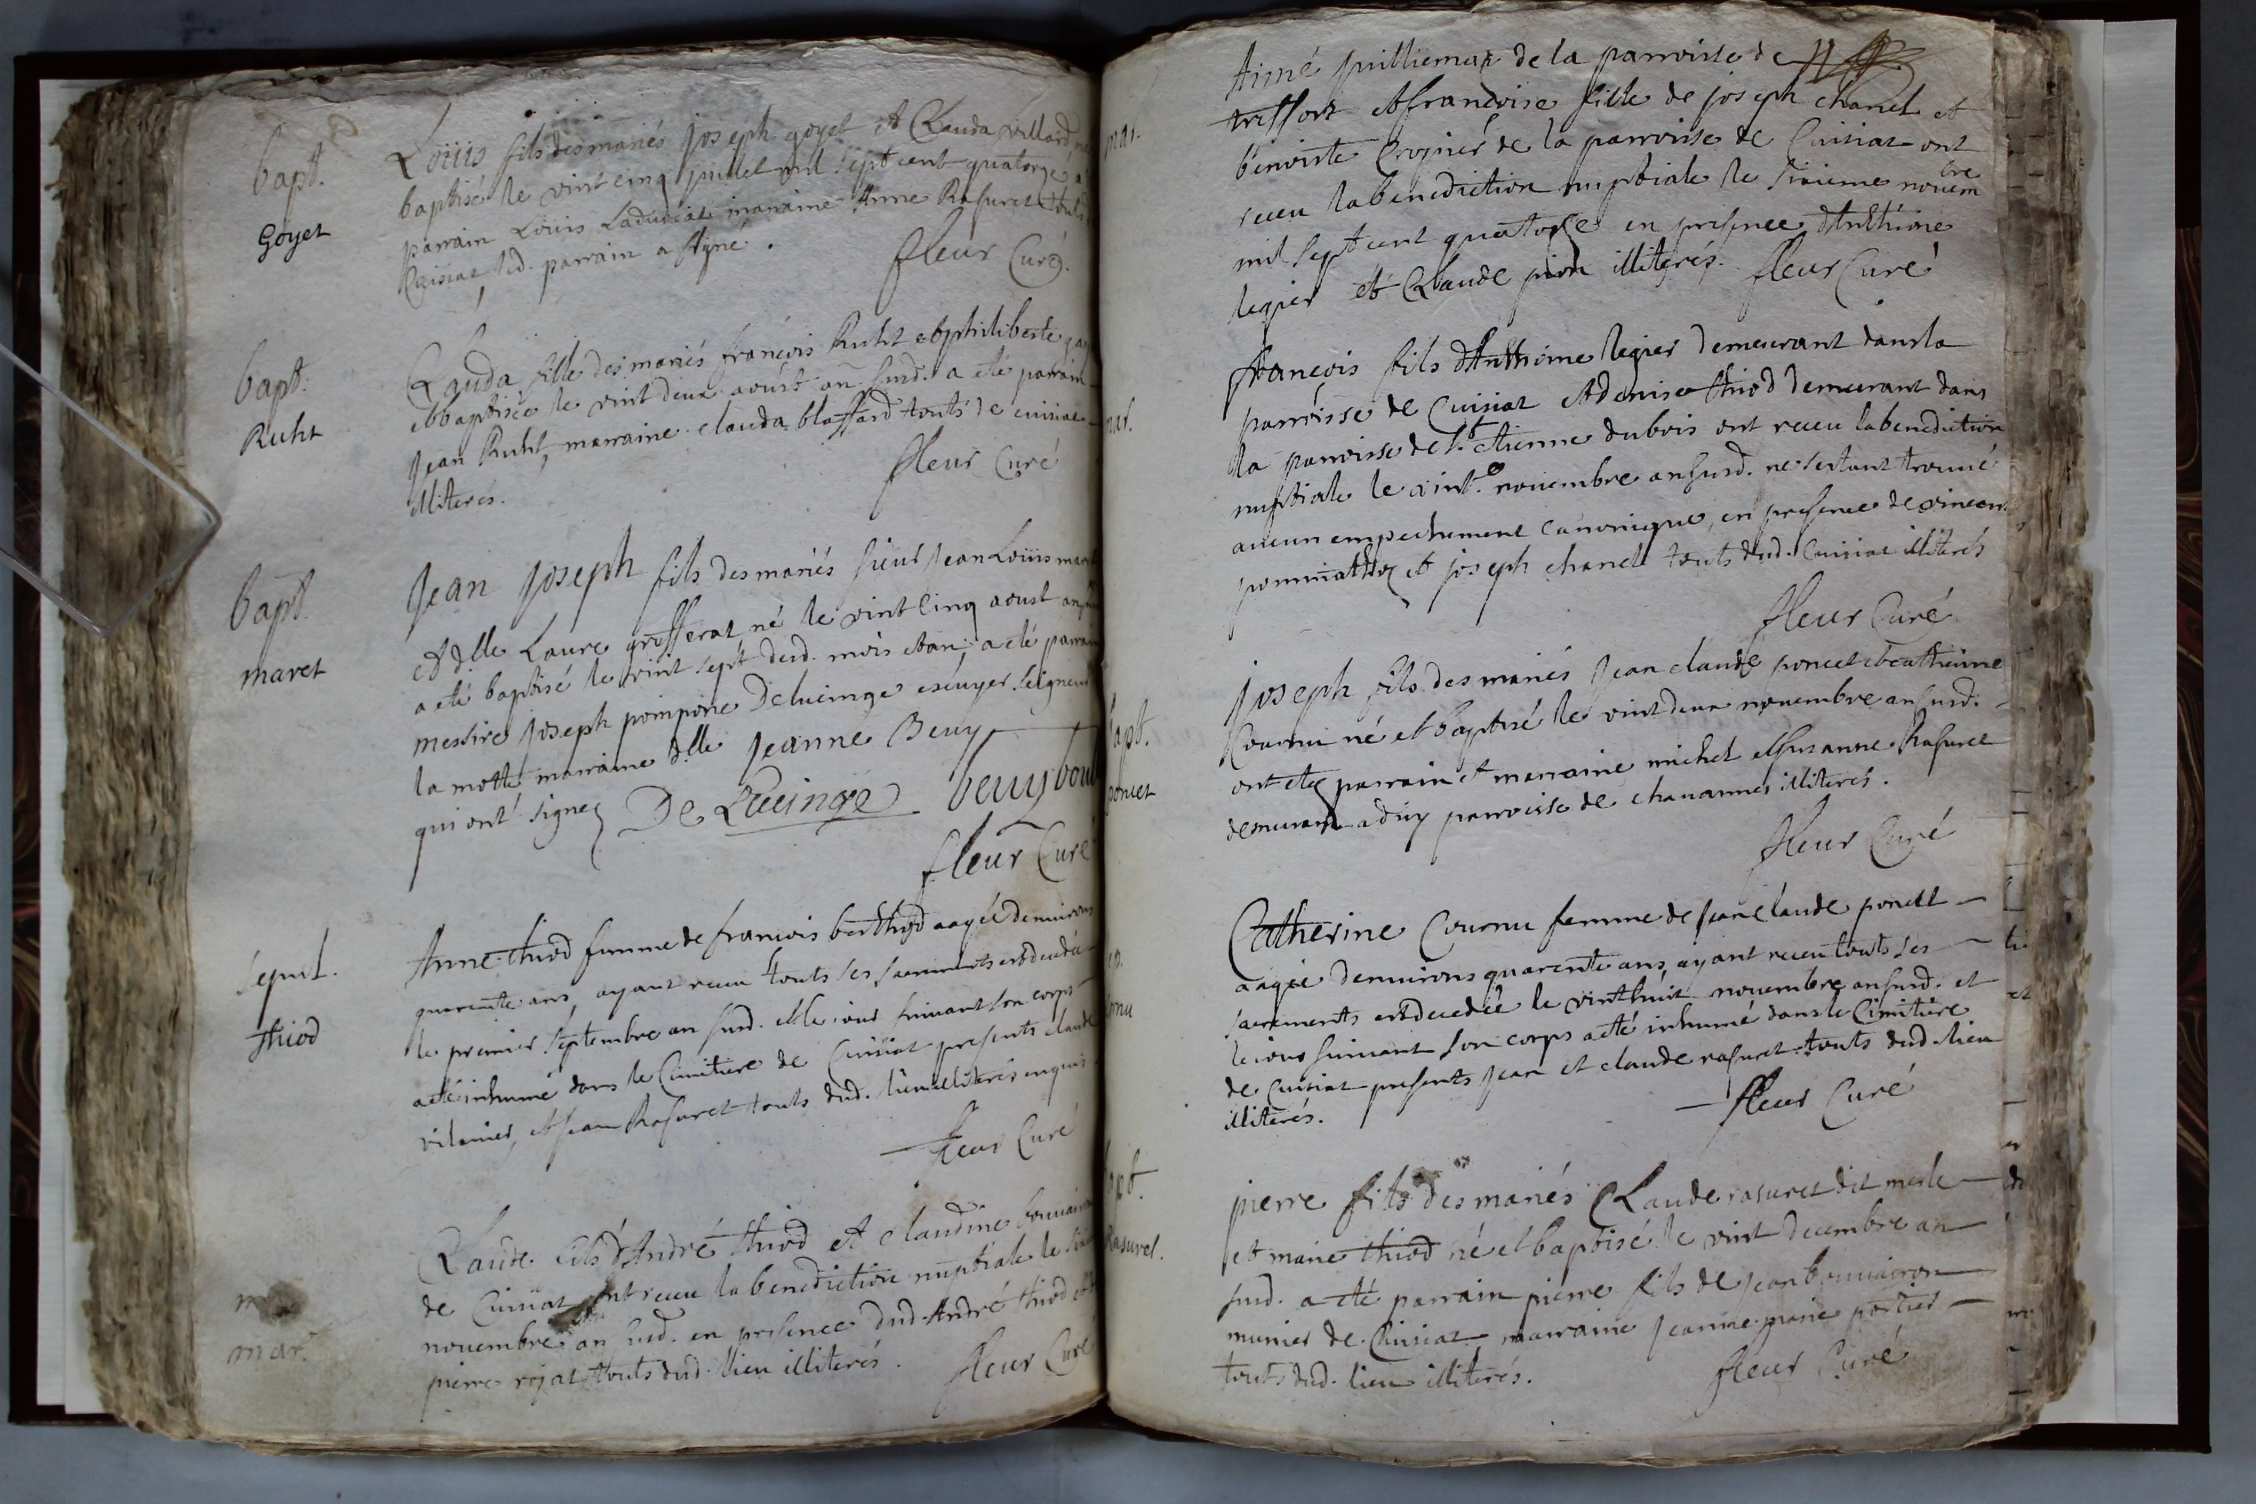 bapt.
Goyet
Loüis fils des mariés joseph goyet et Clauda villard
baptisé le vint cinq juillet mil sept cent quatorze a
parrain Loüis maraine Anne Rasuret touts
Cuisiat led. parrain a signé.
fleur Curé.
bapt.
Ruht
Clauda fille des mariés françois Ruht et philiberte
et baptisée le vint deux aoust an susd. a eté parrain
jean Ruht, marraine clauda blassard touts de cuisiat
illiterés.
fleur Curé
bapt.
maret
Jean joseph fils des mariés sieur jean Loüis
et dlle Laure grosserat né le vint cinq aoust an
a eté baptisé le vint sept dud. mois et an, a eté parrain
messire joseph pompone Delucinge escuyer seigneur
la motte marraine dlle jeanne Beuy
qui ont signez
De Lucinge beuy
fleur Curé
sepul.
thiod
Anne thiod femme de francois berthod aagée denuirons
quarente ans, ayant receu touts ses sacrements est decedée
le premier septembre an susd. et le iour suiuant son corps
a eté inhumé dans le Cimitiere de Cuisiat presents claude
vilanier, et jean Rasuret touts dud. lieu illiterés enquis
fleur Curé
mar.
Claude fils d'André thiod et claudine bouuairon
de Cuisiat ont receu la benediction nuptiale le
nouembre an susd. en presence dud. André thiod et
pierre rojat touts dud. lieu illiterés.
fleur Curé
mar.
Aimé puilliemaz de la parroisse de
treffort et françoise fille de joseph chanel et
benoiste Crognier de la parroisse de Cuisiat ont
receu la benediction nuptiale le sixieme nouembre
mil sept cent quatorze en presence d'Anthoine
legier et Claude pion illiterés. fleur Curé
mar.
françois fils d'Anthoine legier demeurant dans la
parroisse de Cuisiat et denise thiod demeurant dans
la parroisse de St. etienne dubois ont receu la benediction
nuptiale le vint.e nouembre an susd. ne sestant trouué
aucun empechement canonique, en presence de vincent
pommathioz et joseph chanel touts dud. Cuisiat illiterés
fleur Curé
bapt.
poncet
joseph fils des mariés jean claude poncet et catherine
Cournu né et baptisé le vint deux nouembre an susd.
ont eté parrain et marraine michel et susanne Rasuret
demeurant a diuy parroisse de chauannes illiterés.
fleur Curé
Catherine Cournu femme de jean claude poncet
aagée denuirons quarente ans, ayant receu touts ses
sacrements est decedée le vint huit nouembre an susd. et
le iour suiuant son corps a eté inhumé dans le Cimitiere
de Cuisiat presents jean et claude rasuret touts dud. lieu
illiterés.
fleur Curé
bapt.
Rasuret.
pierre fils des mariés Claude rasuret dit merle
et marie thiod né et baptisé le vint decembre an
susd. a eté parrain pierre fils de jean bouuairon
munier de Cuisiat marraine jeanne marie portier
touts dud. lieu illiterés.
fleur Curé